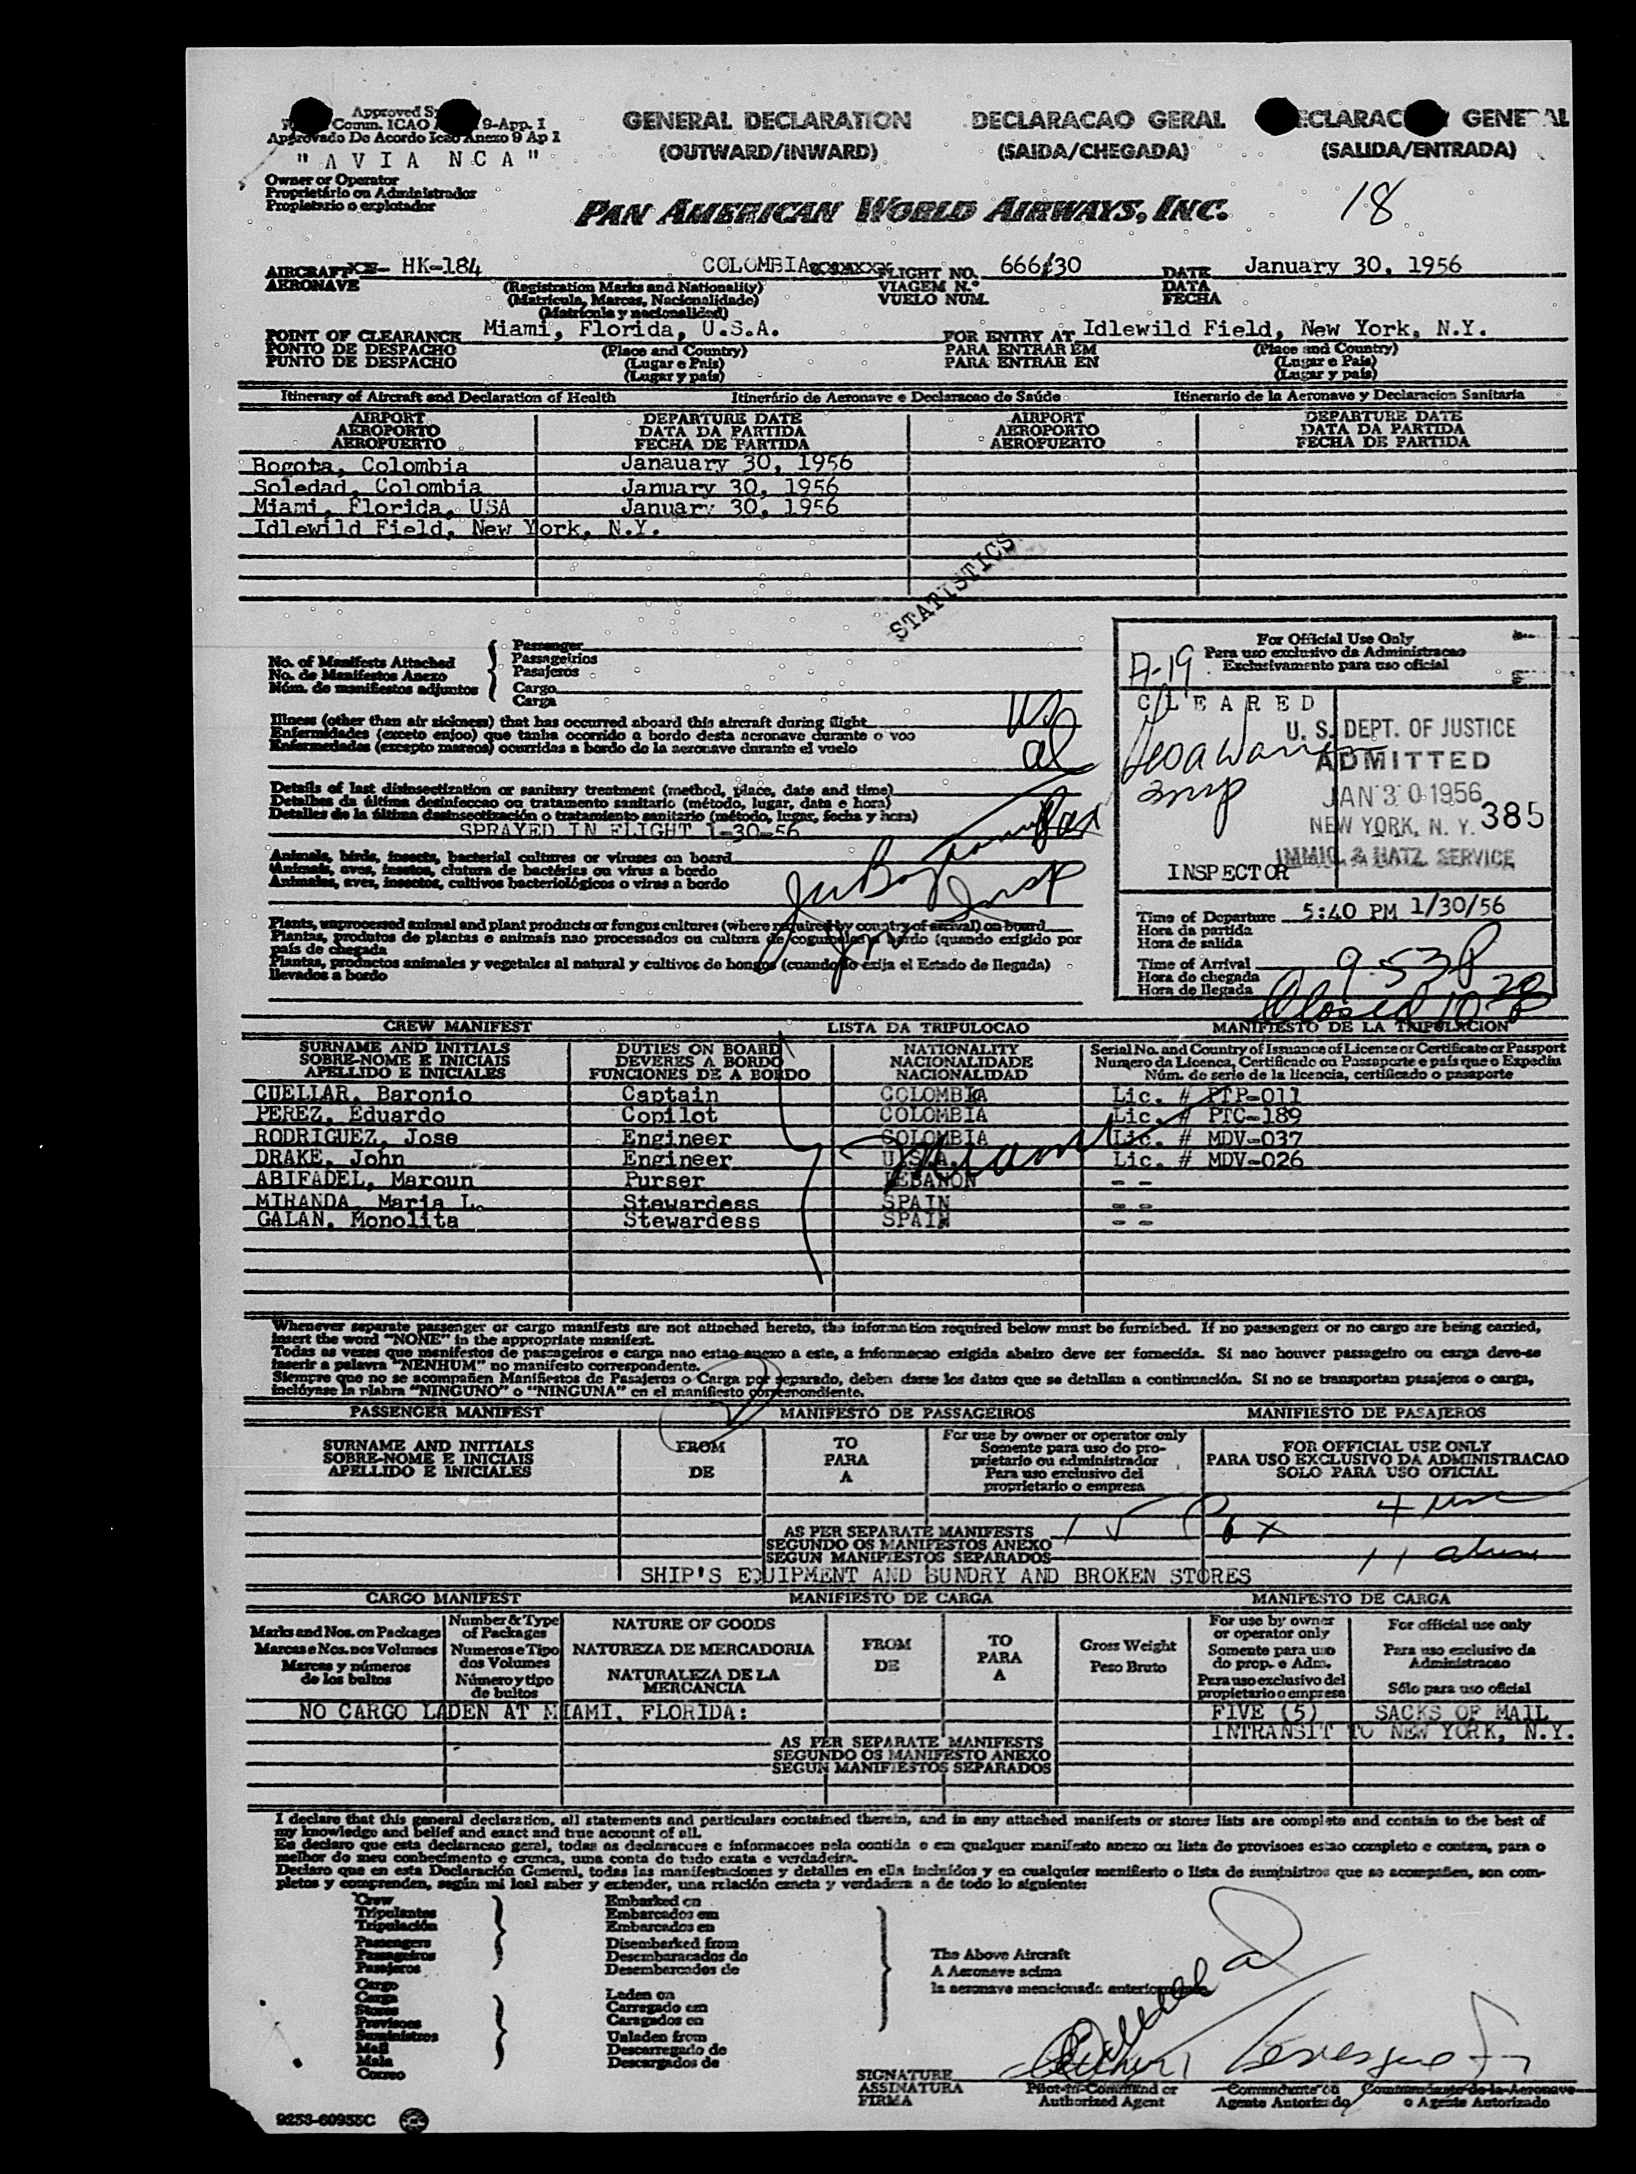 Approved
Comm. ICAO 9-App. I
Aprovado Do Acordo Icao Anexo 9 Ap 1
"AVIANCA"
Owner or Operator
Proprietário ou Administrador
Propietario o explotador
GENERAL DECLARATION
(OUTWARD/INWARD)
DECLARACAO GERAL
(SAIDA/CHEGADA)
GENERAL
(SALIDA/ENTRADA)
PAN AMERICAN WORLD AIRWAYS, INC.
18
AIRCRAFT HK-184 COLOMBIA FLIGHT NO. 666/30 DATE January 30, 1956
AERONAVE (Registration Marks and Nationality) VIAGEM N.º DATA
(Matricula, Marcas, Nacionalidade) VUELO NUM. FECHA
(Matrícula y nacionalidad)
POINT OF CLEARANCE Miami, Florida, U.S.A. FOR ENTRY AT Idlewild Field, New York, N.Y.
PONTO DE DESPACHO (Place and Country) PARA ENTRAR EM (Place and Country)
PUNTO DE DESPACHO (Lugar e País) PARA ENTRAR EN (Lugar e País)
(Lugar y país) (Lugar y país)
Itinerary of Aircraft and Declaration of Health Itinerário de Aeronave e Declaracao de Saúde Itinerario de la Aeronave y Declaracion Sanitaria
AIRPORT DEPARTURE DATE AIRPORT DEPARTURE DATE
AEROPORTO DATA DA PARTIDA AEROPORTO DATA DA PARTIDA
AEROPUERTO FECHA DE PARTIDA AEROPUERTO FECHA DE PARTIDA
Bogota, Colombia Janauary 30, 1956
Soledad, Colombia January 30, 1956
Miami, Florida, USA January 30, 1956
Idlewild Field, New York, N.Y.
STATISTICS
No. of Manifests Attached
No. de Manifestos Anexo
Núm. de manifiestos adjuntos
Passenger
Passageirios
Pasajeros
Cargo
Carga
Illness (other than air sickness) that has occurred aboard this aircraft during flight
Enfermidades (exceto enjoo) que tanha ocorrido a bordo desta aeronave durante o voo
Enfermedades (excepto mareos) ocurridas a bordo de la aeronave durante el vuelo
Details of last disinsectization or sanitary treatment (method, place, date and time)
Detalhes da última desinfeccao ou tratamento sanitario (método, lugar, data e hora)
Detalles de la última desinsectización o tratamiento sanitario (método, lugar, fecha y hora)
SPRAYED IN FLIGHT 1-30-56
Animals, birds, insects, bacterial cultures or viruses on board
Animais, aves, insetos, clutura de bactérias ou virus a bordo
Animales, aves, insectos, cultivos bacteriológicos o virus a bordo
Plants, unprocessed animal and plant products or fungus cultures (where required by country of arrival) on board
Plantas, produtos de plantas e animais nao processados ou cultura de cogumelos a bordo (quando exigido por
país de chegada
Plantas, productos animales y vegetales al natural y cultivos de hongos (cuando lo exija el Estado de llegada)
llevados a bordo
For Official Use Only
Para uso exclusivo da Administracao
Exclusivamente para uso oficial
A-19
CLEARED
U. S. DEPT. OF JUSTICE
ADMITTED
JAN 30 1956
NEW YORK, N. Y. 385
IMMIG. & NATZ. SERVICE
INSPECTOR
Time of Departure 5:40 PM 1/30/56
Hora da partida
Hora de salida
Time of Arrival 9:53P
Hora de chegada
Hora de llegada
Closed
CREW MANIFEST LISTA DA TRIPULOCAO MANIFIESTO DE LA TRIPULACION
SURNAME AND INITIALS DUTIES ON BOARD NATIONALITY Serial No. and Country of Issuance of License or Certificate or Passport
SOBRE-NOME E INICIAIS DEVERES A BORDO NACIONALIDADE Numero da Licenca, Certificado ou Passaporte e país que o Expediu
APELLIDO E INICIALES FUNCIONES DE A BORDO NACIONALIDAD Núm. de serie de la licencia, certificado o pasaporte
CUELLAR, Baronio Captain COLOMBIA Lic. # PTP-011
PEREZ, Eduardo Copilot COLOMBIA Lic. # PTC-189
RODRIGUEZ, Jose Engineer COLOMBIA Lic. # MDV-037
DRAKE, John Engineer U.S.A. Lic. # MDV-026
ABIFADEL, Maroun Purser LEBANON - -
MIRANDA, Maria L. Stewardess SPAIN - -
GALAN, Monolita Stewardess SPAIN - -
Miami
Whenever separate passenger or cargo manifests are not attached hereto, the information required below must be furnished. If no passengers or no cargo are being carried,
insert the word "NONE" in the appropriate manifest.
Todas as vezes que manifestos de passageiros e carga nao estao anexo a este, a informacao exigida abaixo deve ser fornecida. Si nao houver passageiro ou carga deve-se
inserir a palavra "NENHUM" no manifesto correspondente.
Siempre que no se acompañen Manifiestos de Pasajeros o Carga por separado, deben darse los datos que se detallan a continuación. Si no se transportan pasajeros o carga,
inclúyase la plabra "NINGUNO" o "NINGUNA" en el manifiesto correspondiente.
PASSENGER MANIFEST MANIFESTO DE PASSAGEIROS MANIFIESTO DE PASAJEROS
SURNAME AND INITIALS
SOBRE-NOME E INICIAIS
APELLIDO E INICIALES
FROM
DE
TO
PARA
A
For use by owner or operator only
Somente para uso do pro-
prietario ou administrador
Para uso exclusivo del
proprietario o empresa
FOR OFFICIAL USE ONLY
PARA USO EXCLUSIVO DA ADMINISTRACAO
SOLO PARA USO OFICIAL
AS PER SEPARATE MANIFESTS
SEGUNDO OS MANIFESTOS ANEXO
SEGUN MANIFIESTOS SEPARADOS
SHIP'S EQUIPMENT AND SUNDRY AND BROKEN STORES
CARGO MANIFEST MANIFIESTO DE CARGA MANIFESTO DE CARGA
Marks and Nos. on Packages
Marcas e Nos. nos Volumes
Marcas y números
de los bultos
Number & Type
of Packages
Numeros e Tipo
dos Volumes
Número y tipo
de bultos
NATURE OF GOODS
NATUREZA DE MERCADORIA
NATURALEZA DE LA
MERCANCIA
FROM
DE
TO
PARA
A
Gross Weight
Peso Bruto
For use by owner
or operator only
Somente para uso
do prop. o Adm.
Para uso exclusivo del
propietario o empresa
For official use only
Para uso exclusivo da
Administracao
Sólo para uso oficial
NO CARGO LADEN AT MIAMI, FLORIDA: FIVE (5) SACKS OF MAIL
INTRANSIT TO NEW YORK, N.Y.
AS PER SEPARATE MANIFESTS
SEGUNDO OS MANIFESTO ANEXO
SEGUN MANIFIESTOS SEPARADOS
I declare that this general declaration, all statements and particulars contained therein, and in any attached manifests or stores lists are complete and contain to the best of
my knowledge and belief and exact and true account of all.
Eu declaro que esta declaracao geral, todas as declaracoes e informacoes nela contida e em qualquer manifesto anexo ou lista de provisoes estao completo e contem, para o
melhor do meu conhecimento e crenca, uma conta de tudo exata e verdadeira.
Declaro que en esta Declaración General, todas las manifestaciones y detalles en ella incluídos y en cualquier menifiesto o lista de suministros que se acompañen, son com-
pletos y comprenden, según mi leal saber y entender, una relación exacta y verdadera a de todo lo siguiente:
Crew
Tripulantes
Tripulación
Passengers
Passageiros
Pasajeros
Cargo
Carga
Stores
Provisoes
Suministros
Mail
Mala
Correo
Embarked on
Embarcados em
Embarcados en
Disembarked from
Desembaracados do
Desembarcados de
Laden on
Carregado em
Caragados en
Unladen from
Descarregado do
Descargados de
The Above Aircraft
A Aeronave acima
la aeronave mencionada anteriormente
SIGNATURE
ASSINATURA
FIRMA
Pilot-in-Command or
Authorized Agent
Comandante ou
Agente Autorizado
Commandante de la Aeronave
o Agente Autorizado
9253-60955C